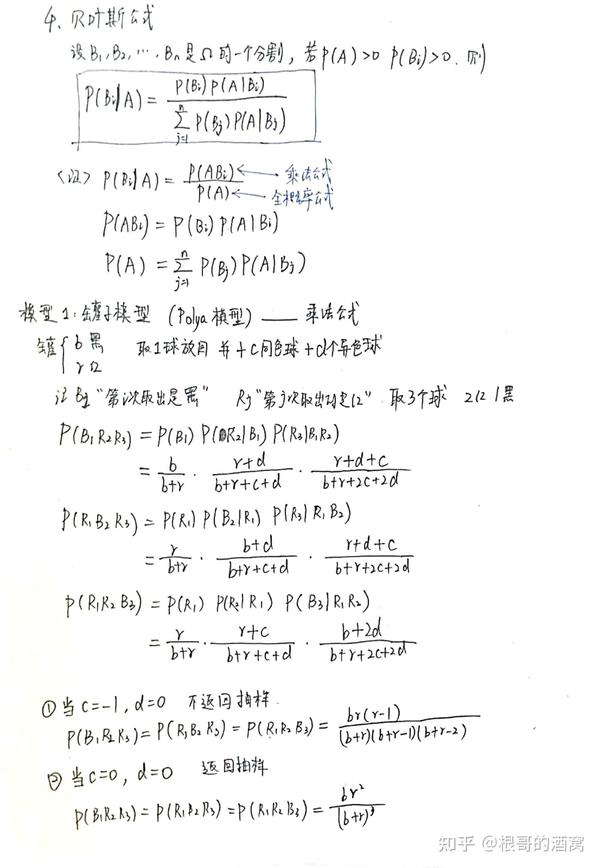 4、贝叶斯公式
设B₁,B₂,…,Bₙ是Ω的一个分割，若P(A)>0 P(Bᵢ)>0.则
P(Bᵢ|A) = P(Bᵢ)P(A|Bᵢ) / ∑ⱼ₌₁ⁿ P(Bⱼ)P(A|Bⱼ)
<证> P(Bᵢ|A) = P(ABᵢ) / P(A) ← 乘法公式 ← 全概率公式
P(ABᵢ) = P(Bᵢ)P(A|Bᵢ)
P(A) = ∑ⱼ₌₁ⁿ P(Bⱼ)P(A|Bⱼ)
模型1:罐子模型 (Polya模型) —— 乘法公式
罐{ b黑 r红 取1球放回 并+c同色球+d个异色球
记 "第i次取出是黑" Rⱼ "第j次取出球是红" 取3个球 2红1黑
P(B₁R₂R₃) = P(B₁) P(R₂|B₁) P(R₃|B₁R₂)
= b/(b+r) · (r+d)/(b+r+c+d) · (r+d+c)/(b+r+2c+2d)
P(R₁B₂R₃) = P(R₁) P(B₂|R₁) P(R₃|R₁B₂)
= r/(b+r) · (b+d)/(b+r+c+d) · (r+d+c)/(b+r+2c+2d)
P(R₁R₂B₃) = P(R₁) P(R₂|R₁) P(B₃|R₁R₂)
= r/(b+r) · (r+c)/(b+r+c+d) · (b+2d)/(b+r+2c+2d)
①当c=-1, d=0 不返回抽样
P(B₁R₂R₃) = P(R₁B₂R₃) = P(R₁R₂B₃) = br(r-1)/((b+r)(b+r-1)(b+r-2))
②当c=0, d=0 返回抽样
P(B₁R₂R₃) = P(R₁B₂R₃) = P(R₁R₂B₃) = br²/(b+r)³
知乎 @根哥的酒窝